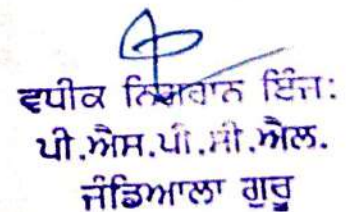 ਵਧੀਕ ਨਿਗਰਾਨ ਇੰਜ:
ਪੀ.ਐਸ.ਪੀ.ਸੀ.ਐਲ.
ਜੰਡਿਆਲਾ ਗੁਰੂ